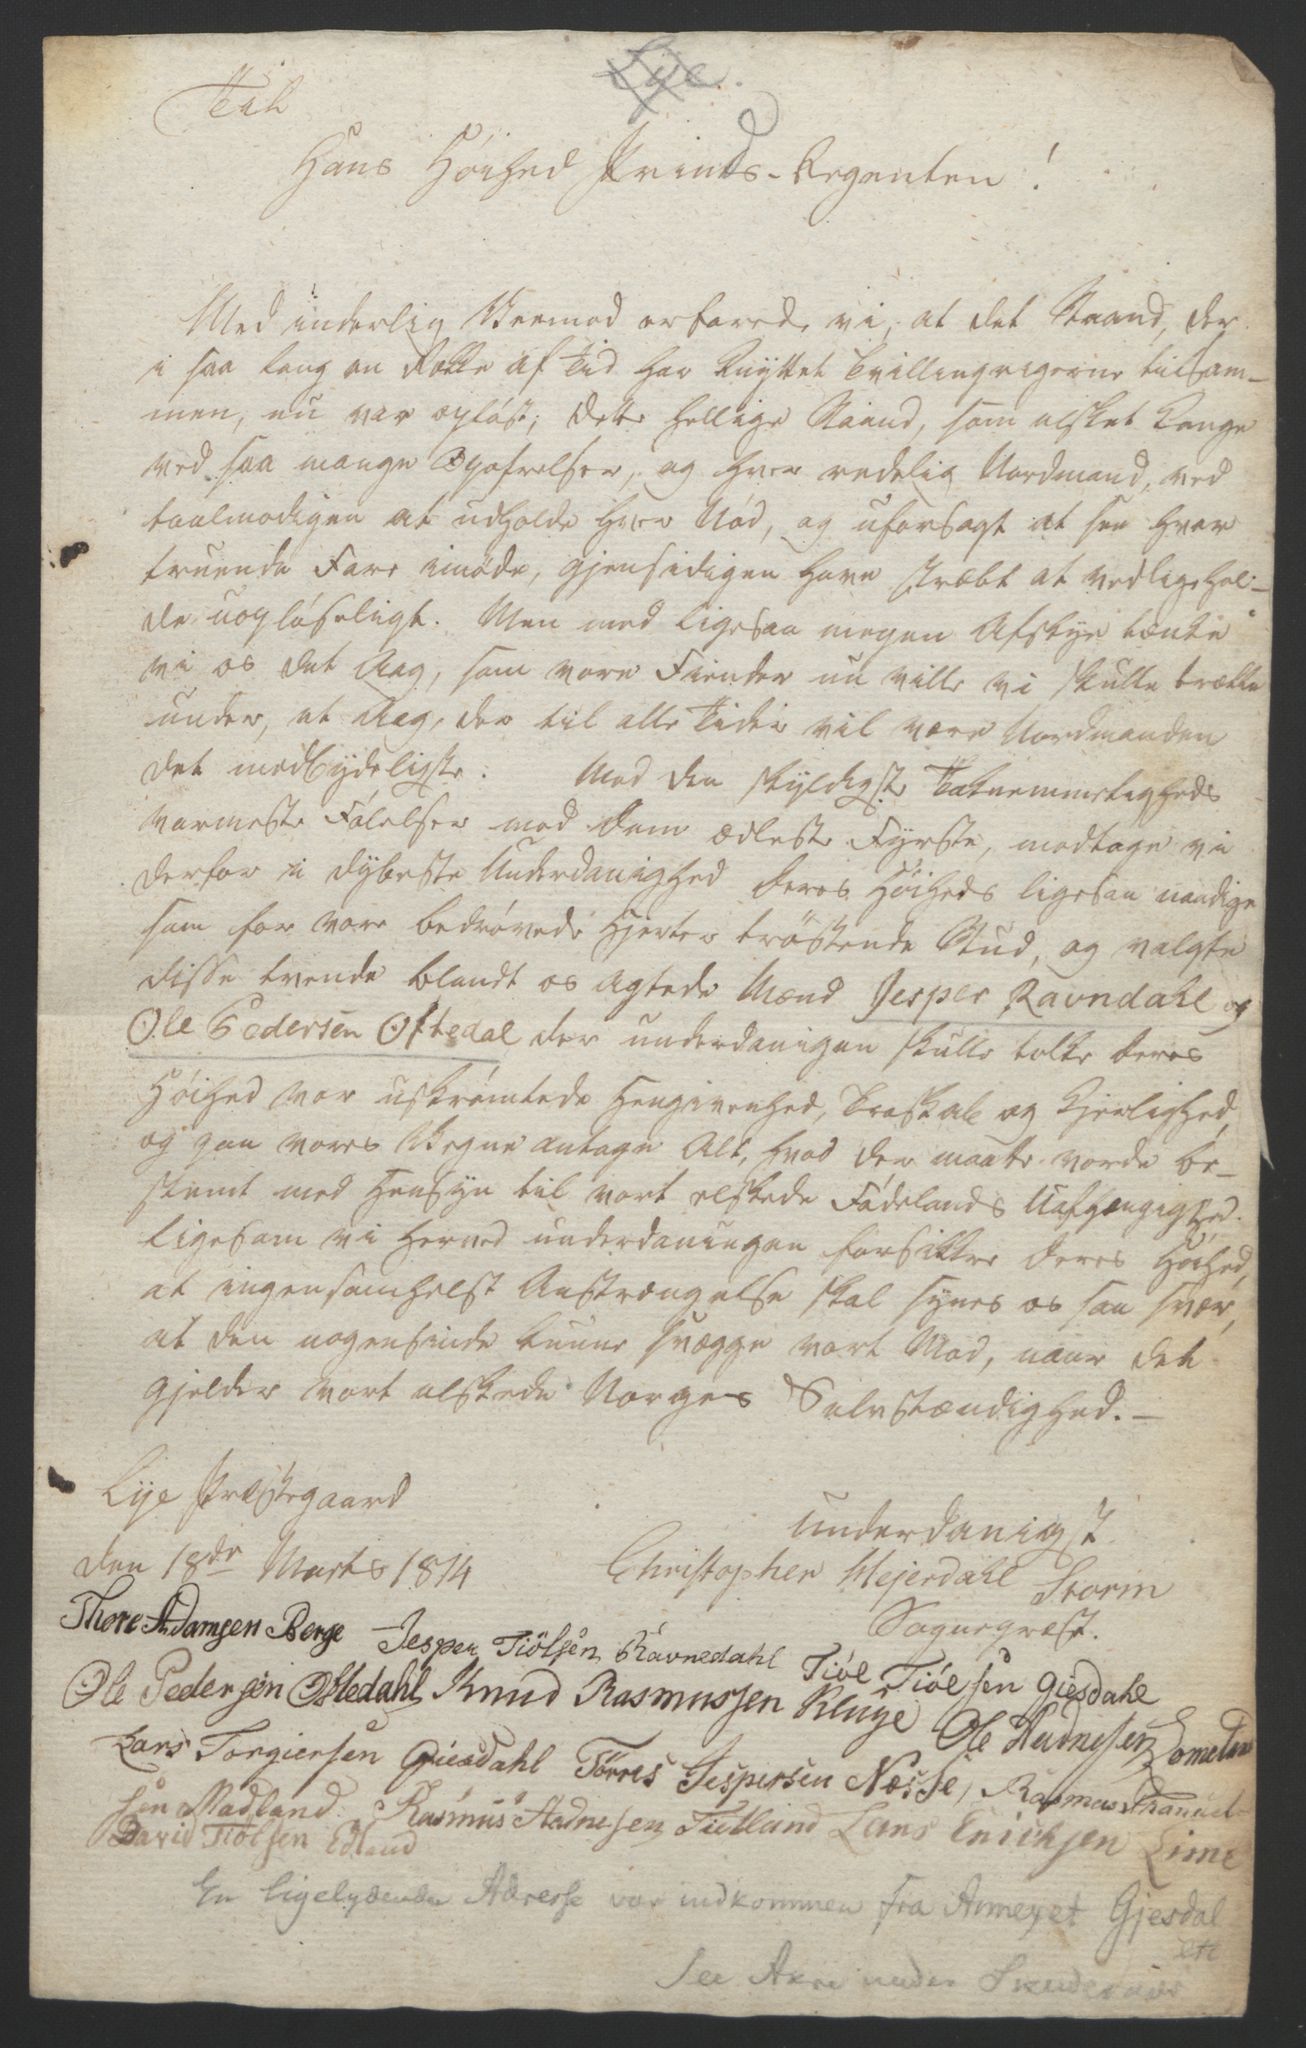 Lye.
Til
Hans Höihed Prinds-Regenten!
Med inderlig Veemod erfarede vi, at det Baand, der
i saa lang en Række af Tid har knyttet Tvillingrigerne tilsam-
men, nu var oplöst; dette hellige Baand, som elsket Konge
ved saa mange Opofrelser, og hver redelig Nordmand, ved
taalmodigen at udholde hver Nöd, og uforsagt at see hver
truende Fare imöde, gjensidigen have stræbt at vedligehol-
de uoplöseligt. Men med ligesaa megen Afskye tænke
vi os det Aag, som vore Fiender nu ville vi skulle trælle
under, et Aag, der til alle Tider vil være Nordmanden
det modbydeligste. Med den skyldigste Taknemmeligheds
varmeste Fölelser mod Dem ædleste Fyrste, modtage vi
derfor i dybeste Underdanighed Deres Höiheds ligesaa naadige
som for vore bedrövede Hjerter tröstende Bud, og valgte
disse tvende blandt os agtede Mænd Jesper Ravndahl og
Ole Pedersen Oftedal der underdanigen skulle tolke Deres
Höihed vor uskrömtede Hengivenhed, Troskab og Kjerlighed,
og paa vores Vegne antage Alt, hvad der maatte vorde be-
stemt med Hensyn til vort elskede Födelands Uafhængighed.
ligesom vi herved underdanigen forsikkre Deres Höihed,
at ingensomhelst Anstrængelse skal synes os saa svær,
at den nogensinde kunne svække vort Mod, naar det
gjelder vort elskede Norges Selvstændighed.-
Lye Præstegaard
den 18de Marts 1814
underdanigst
Christopher Hejerdahl Storm
Sognepræst.
Thore Adamsen Berge Jesper Tiölsen Ravnedahl Tiöl Tiölsen Giesdahl
Ole Pedersen Oftedahl Knud Rasmussen Kluge Ole Hadnesen Lomeland
Lars Torgiersen Giesdahl Törres Jespersen Næsse, Rasmus
sen Madland. Rasmus Hadnesen Tietland Lars Erichsen Lime
David Tiölsen Edland
En ligelydende Adresse var indkommen fra Annexet Gjesdal
etc
See Akre under Skudesnæs